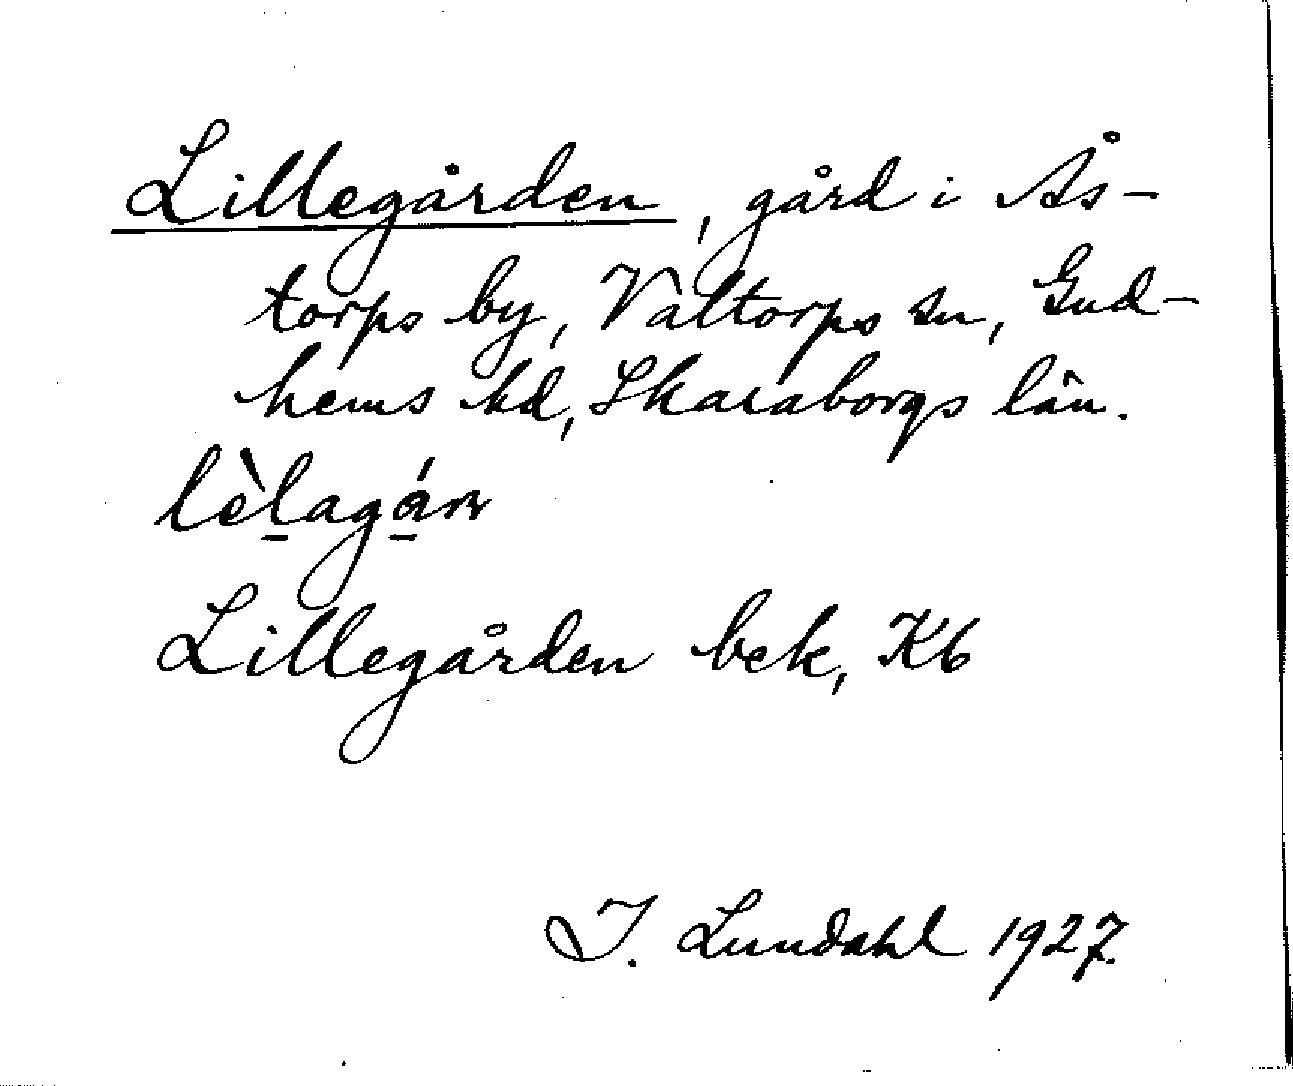 Lillegården, gård i Ås-
torps by, Valtorps sn, Gud-
hems hd, Skaraborgs län.
lèlagán
Lillegården bek, Kb
I. Lundahl 1927.